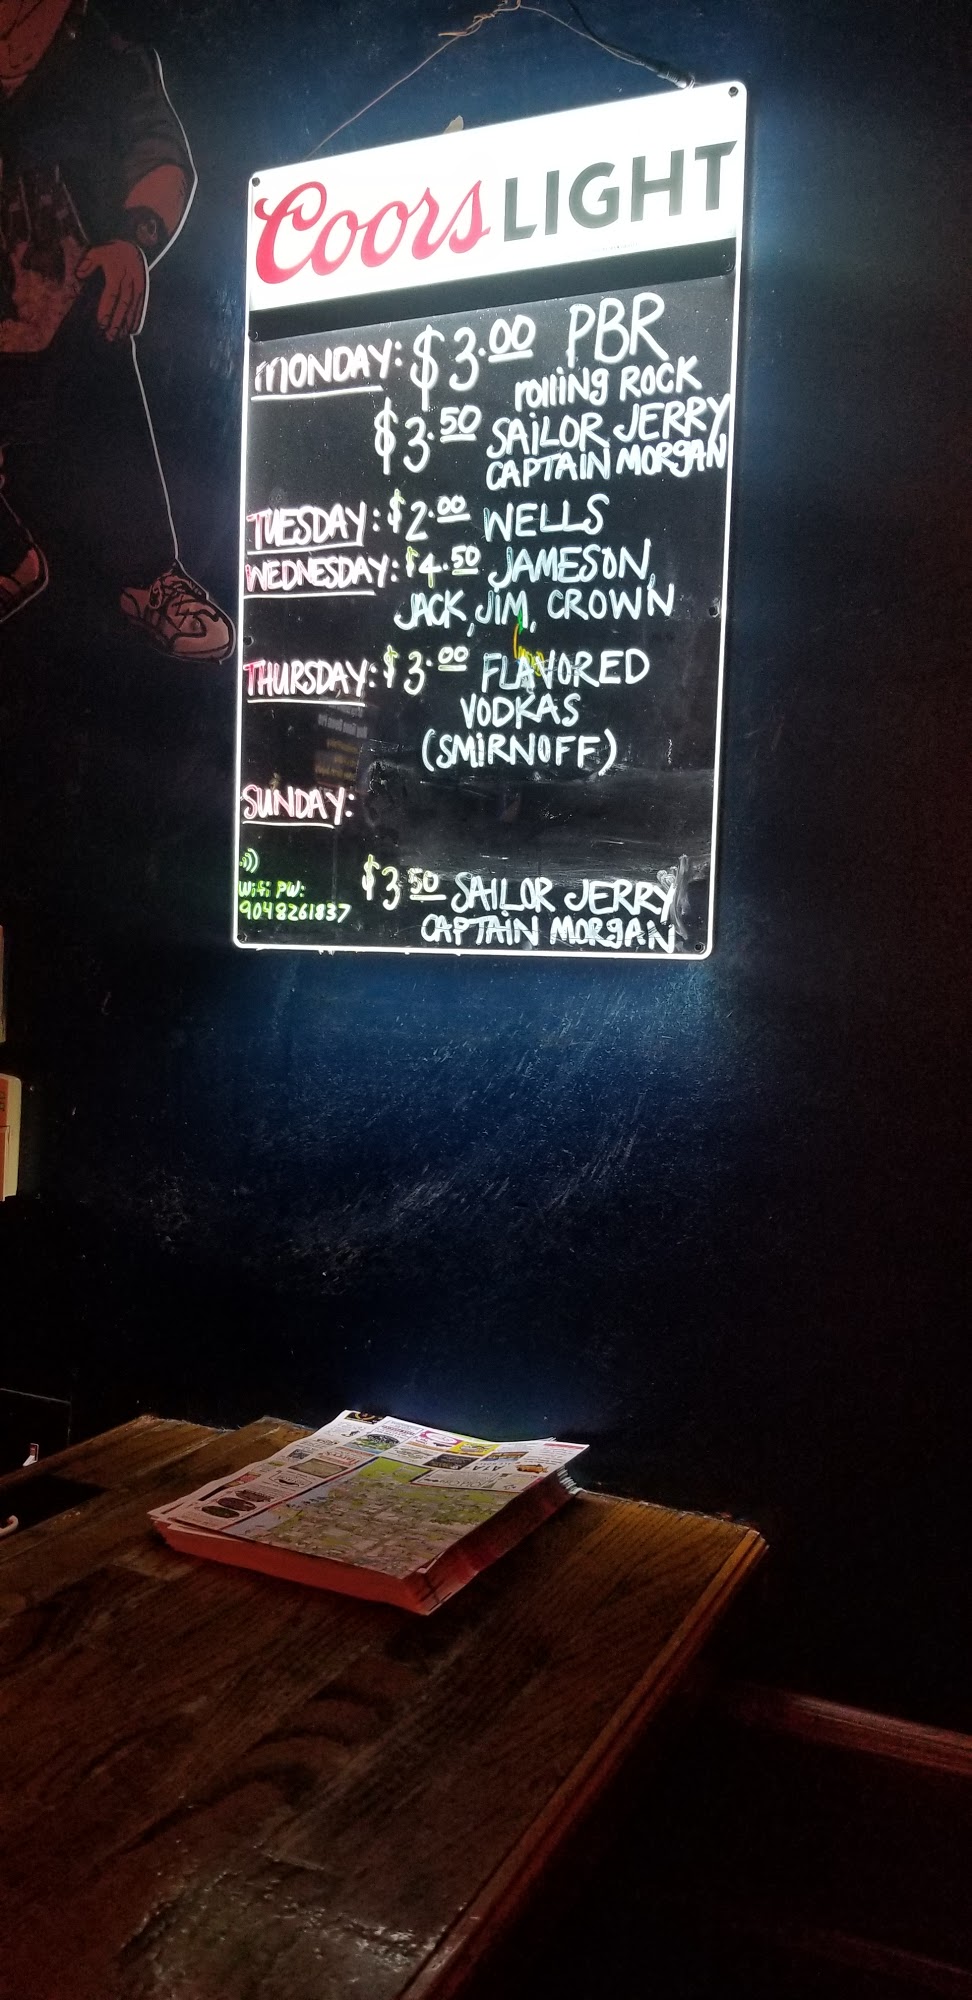 Coors LIGHT
MONDAY: $3.00 PBR
rolling ROCK
$3.50 SAILOR JERRY
CAPTAIN MORGAN
TUESDAY: $2.00 WELLS
WEDNESDAY: $4.50 JAMESON,
JACK, JIM, CROWN
THURSDAY: $3.00 FLAVORED
VODKAS
(SMIRNOFF)
SUNDAY:
$3.50 SAILOR JERRY
CAPTAIN MORGAN
Wifi PW:
9048261837